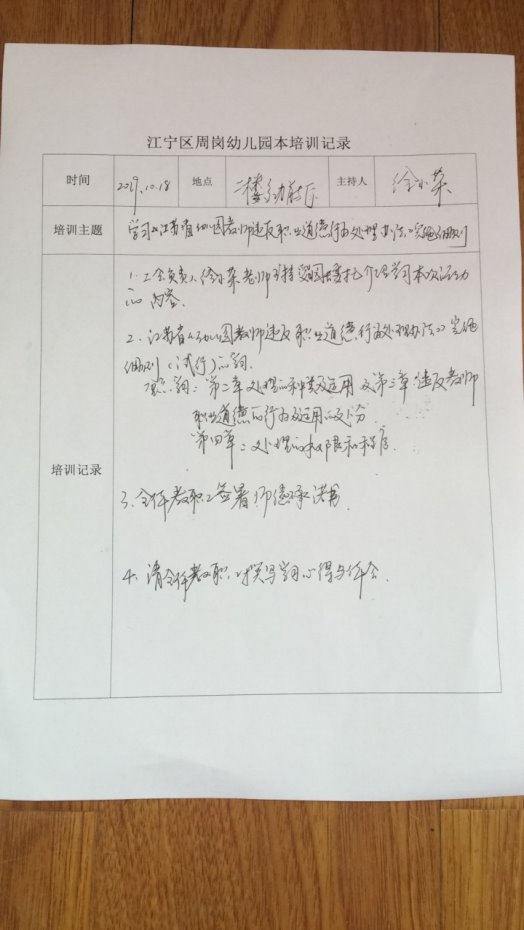 江宁区周岗幼儿园本培训记录
时间 2019.10.18 地点 二楼多功能厅 主持人 徐小荣
培训主题 学习《江苏省幼儿园教师违反职业道德行为处理办法》实施细则
培训记录
1. 工会负责人徐小荣老师主持受园长委托介绍学习本次活动
的内容.
2. 江苏省《幼儿园教师违反职业道德行为处理办法》实施
细则(试行)的学习.
学习: 第二章 处理的种类及适用 及第三章 违反教师
职业道德的行为及适用的处分
第四章: 处理的权限和程序.
3. 全体教职工签署师德承诺书.
4. 请全体教职工撰写学习心得与体会.